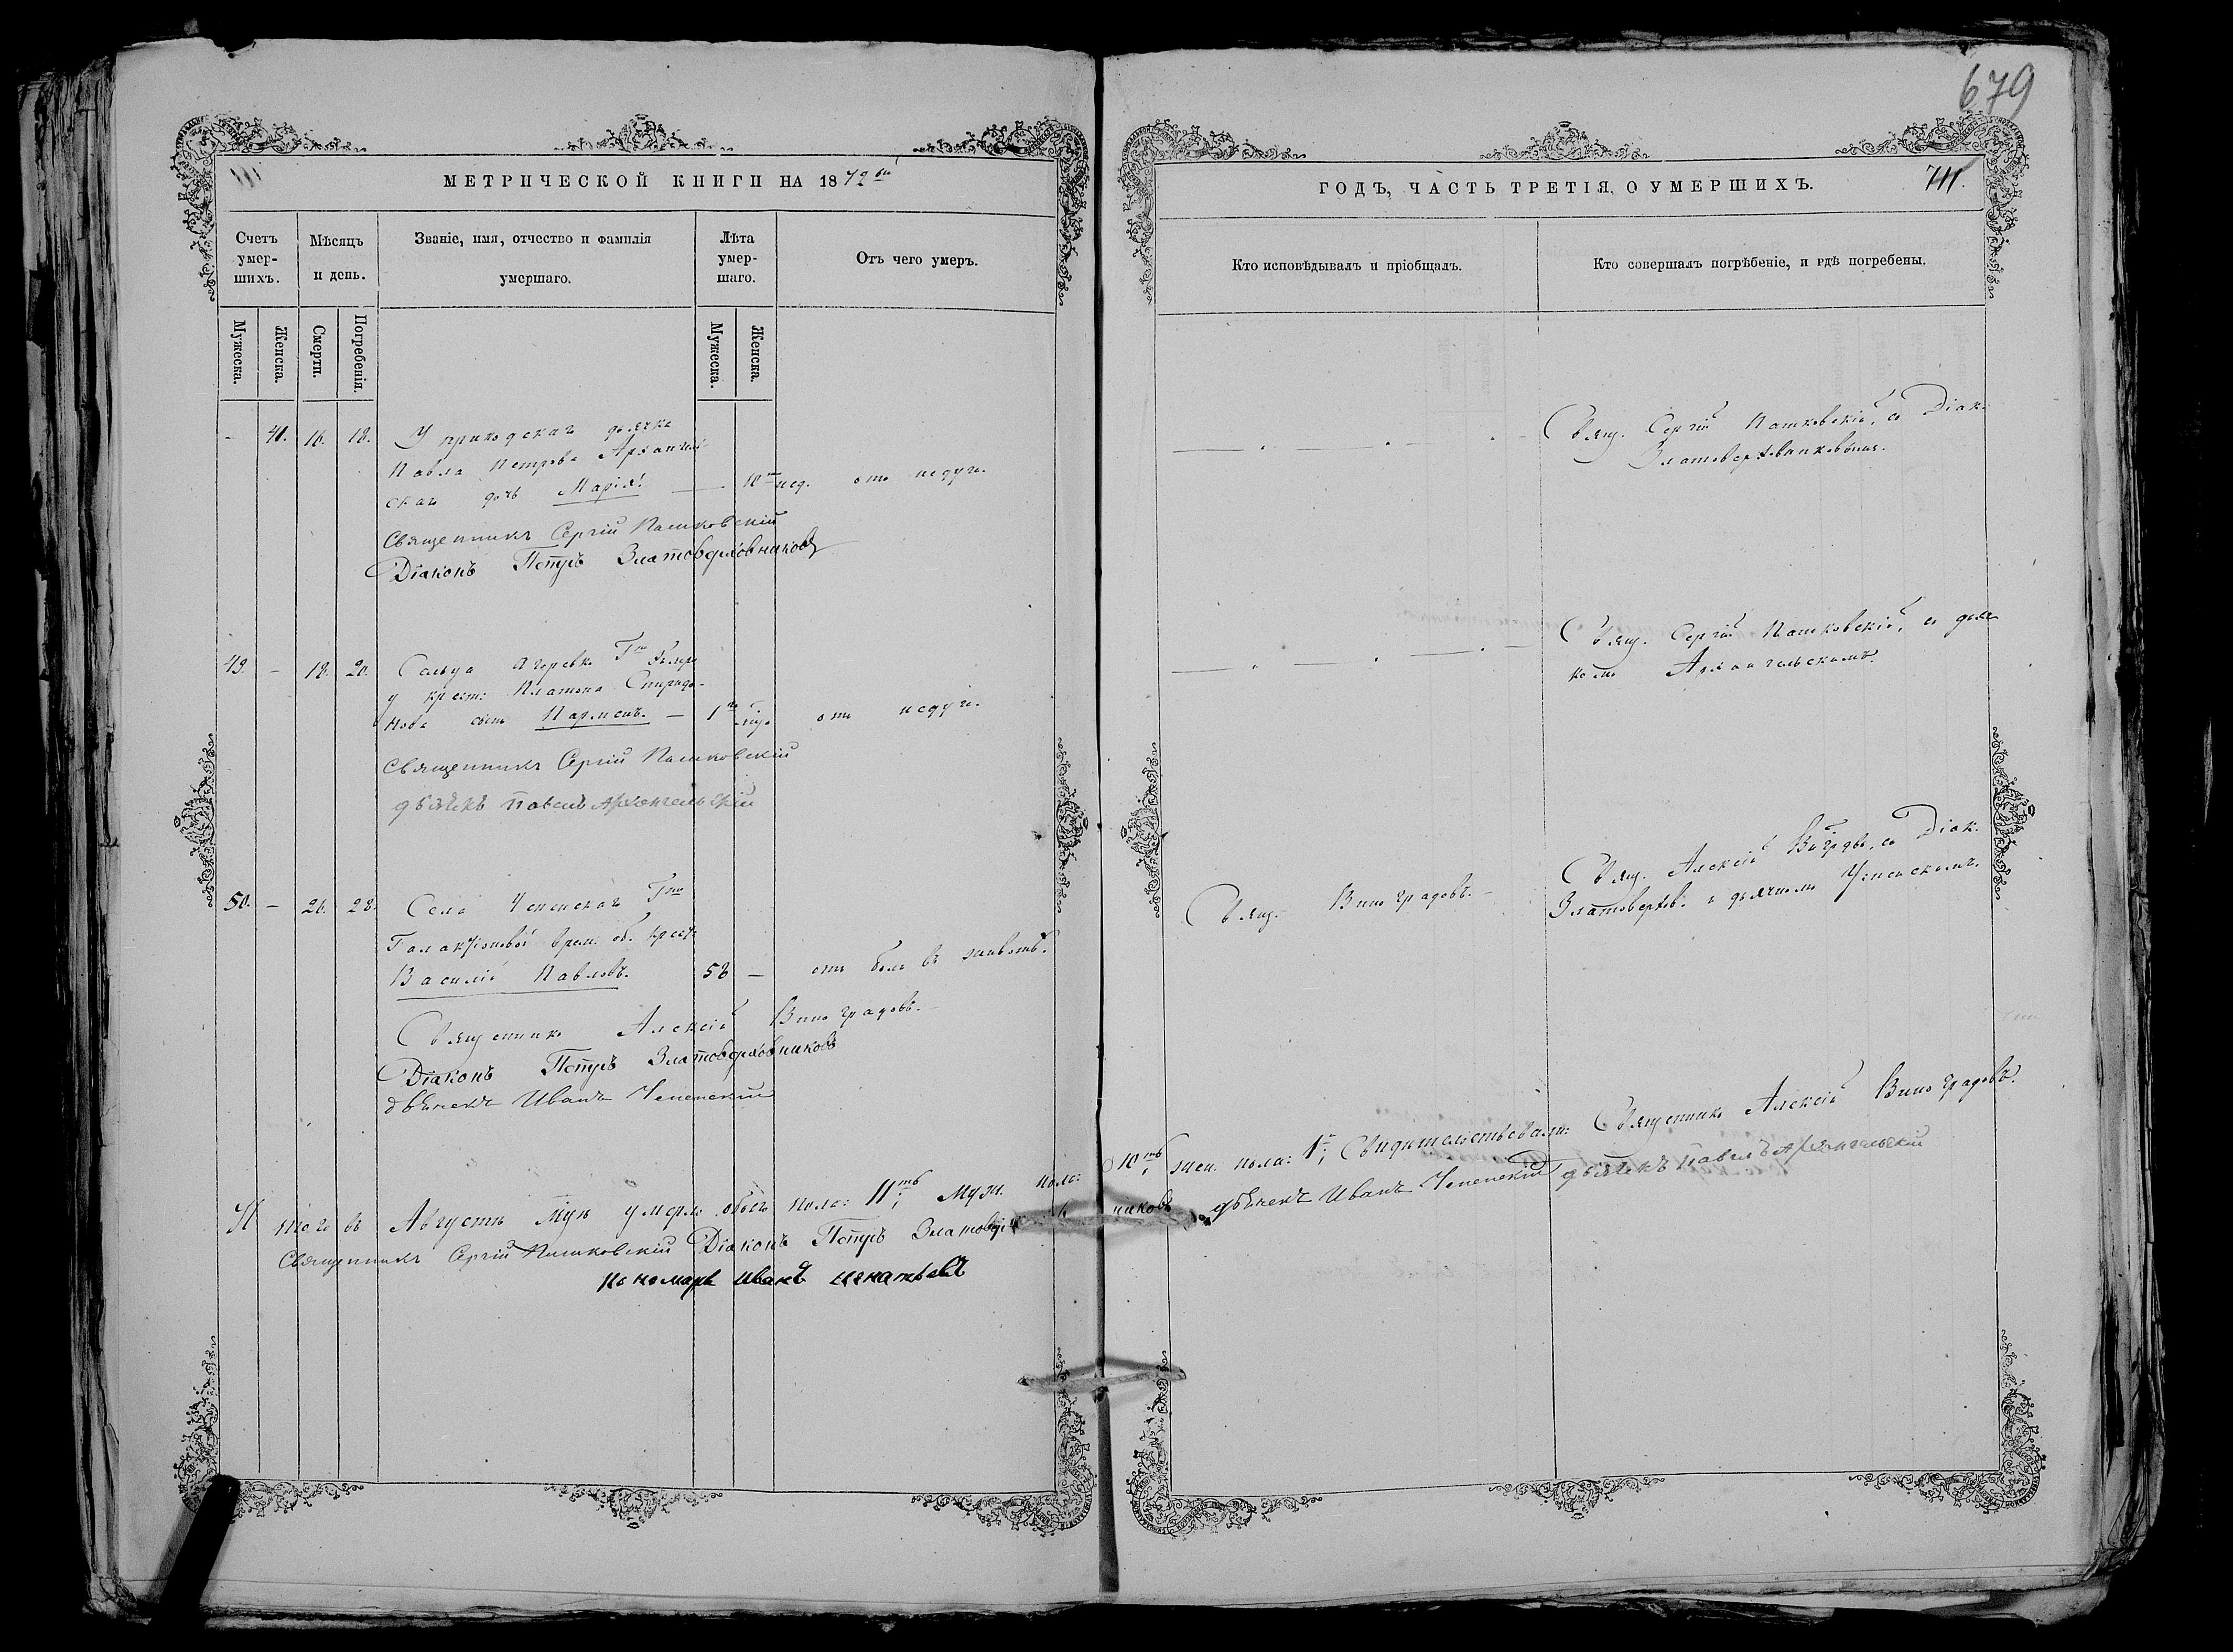 679
МЕТРИЧЕСКОЙ КНИГИ НА 1872 ой
ГОДЪ, ЧАСТЬ ТРЕТІЯ, О УМЕРШИХЪ.
711.
Счетъ умер-
шихъ.
Мѣсяцъ
и день.
Званіе, имя, отчество и фамилія
умершаго.
Лѣта
умер-
шаго.
Отъ чего умеръ.
Кто исповѣдывалъ и пріобщалъ.
Кто совершалъ погрѣбеніе, и гдѣ погребены.
Мужеска.
Женска.
Смерти.
Погребенія.
Мужеска.
Женска.
- 41. 16. 18. У приходскаго дьячка
Павла Петрова Архангель-
скаго дочь Марія. — 10 нед. отъ недуга.
Свящ. Сергій Пашковскій, съ Діак.
Златоверховниковымъ.
Священникъ Сергій Пашковскій
Діаконъ Петръ Златоверховниковъ
49. - 18. 20. Сельца
у крест: Платона Спиридо-
нова сынъ Парменъ. — 1 отъ недуга.
Свящ. Сергій Пашковскій, съ дьяч-
комъ Архангельскимъ.
Священникъ Сергій Пашковскій
дьячекъ Павелъ Архангельскій
50. - 26. 28. Села
Галактіоновой врем. об. крест:
Василій Павловъ. 58 - отъ боли въ животѣ.
Свящ. Виноградовъ. -
Свящ. Алексій Виноградовъ, съ Діак.
Златоверхов. и дьячкомъ
Священникъ Алексій Виноградовъ.
Діаконъ Петръ Златоверховниковъ
дьячекъ Иванъ
Итого въ Августѣ м-цѣ умерло обоего пола: 11ть; муж. пола: 10ть жен. пола: 1; Свидѣтельствовали: Священникъ Алексій Виноградовъ.
Священникъ Сергій Пашковскій Діаконъ Петръ Златоверховниковъ дьячекъ Иванъ дьячекъ Павелъ Архангельскій
Пономарь Иванъ Игнатьевъ